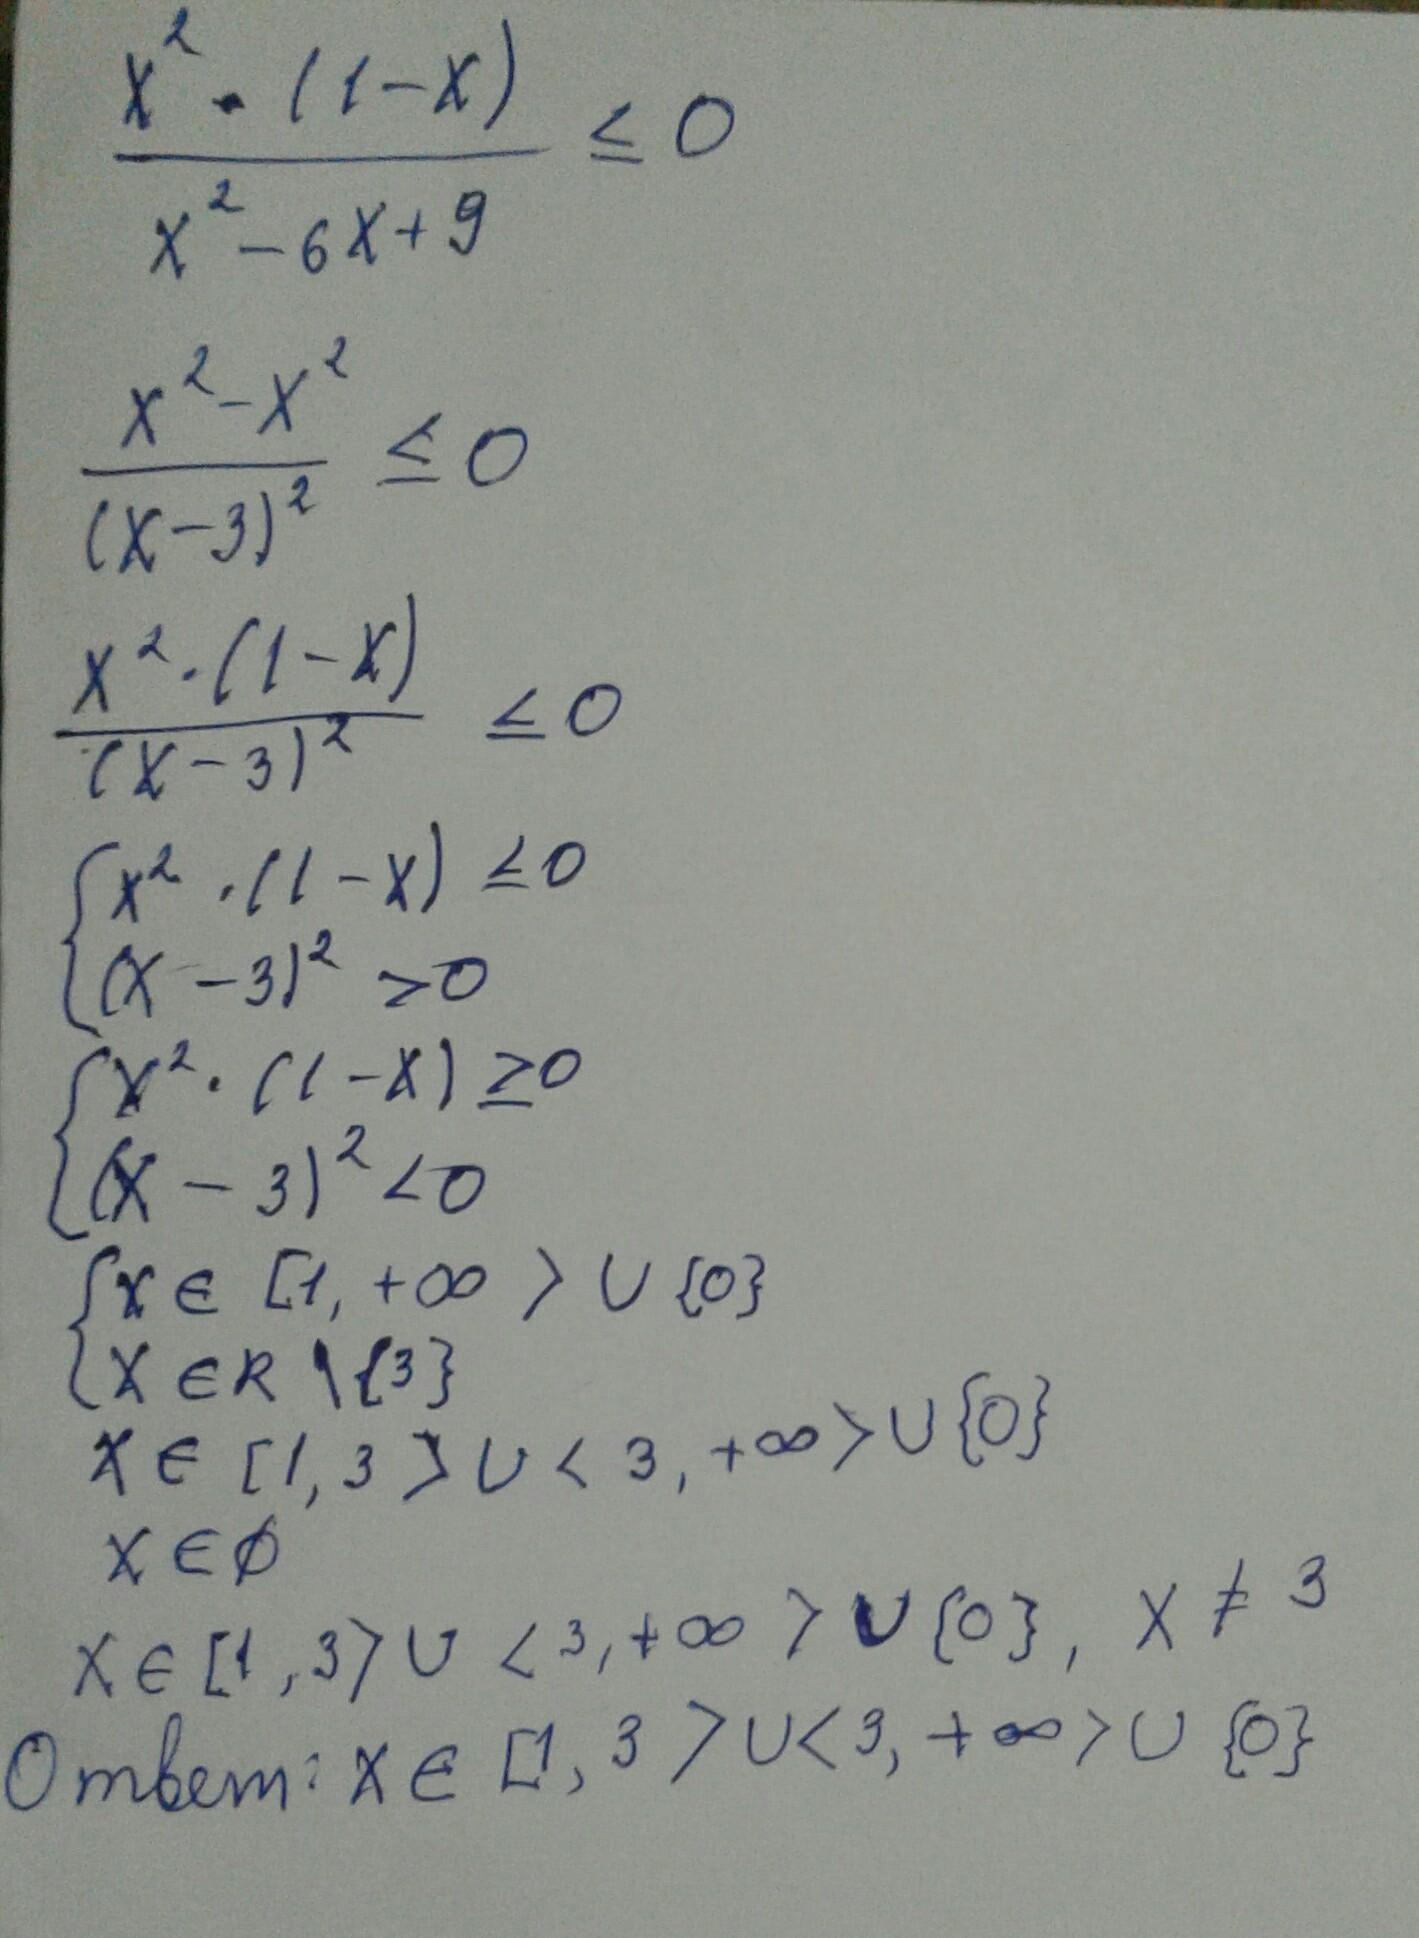 x² · (1-x)
/ x² - 6x + 9 ≤ 0
x² - x²
/ (x-3)² ≤ 0
x² · (1-x)
/ (x-3)² ≤ 0
{ x² · (1-x) ≤ 0
(x-3)² > 0
{ x² · (1-x) ≥ 0
(x-3)² < 0
{ x ∈ [1, +∞ > ∪ {0}
x ∈ R \ {3}
x ∈ [1, 3 > ∪ < 3, +∞ > ∪ {0}
x ∈ ∅
x ∈ [1, 3 > ∪ < 3, +∞ > ∪ {0}, x ≠ 3
Ответ: x ∈ [1, 3 > ∪ < 3, +∞ > ∪ {0}